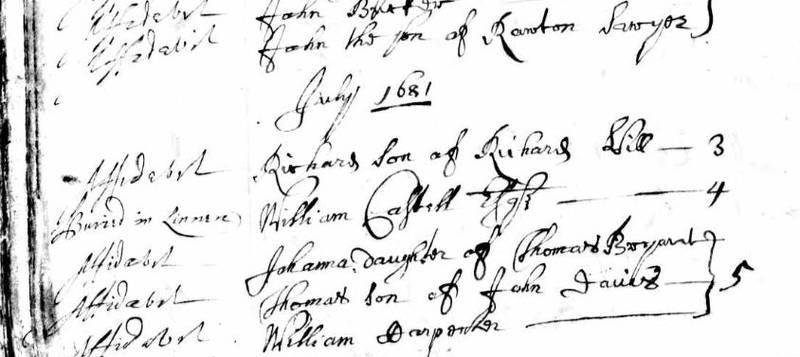 Affidabit John
Affidabit John the son of Rawton Sawyer
July 1681
Affidabit Richard son of Richard Bill — 3
Buried in Linnen William Castell Esqr — 4
Affidabit Johanna daughter of Thomas Bryant
Affidabit Thomas son of John Davies — 5
Affidabit William Carpenter